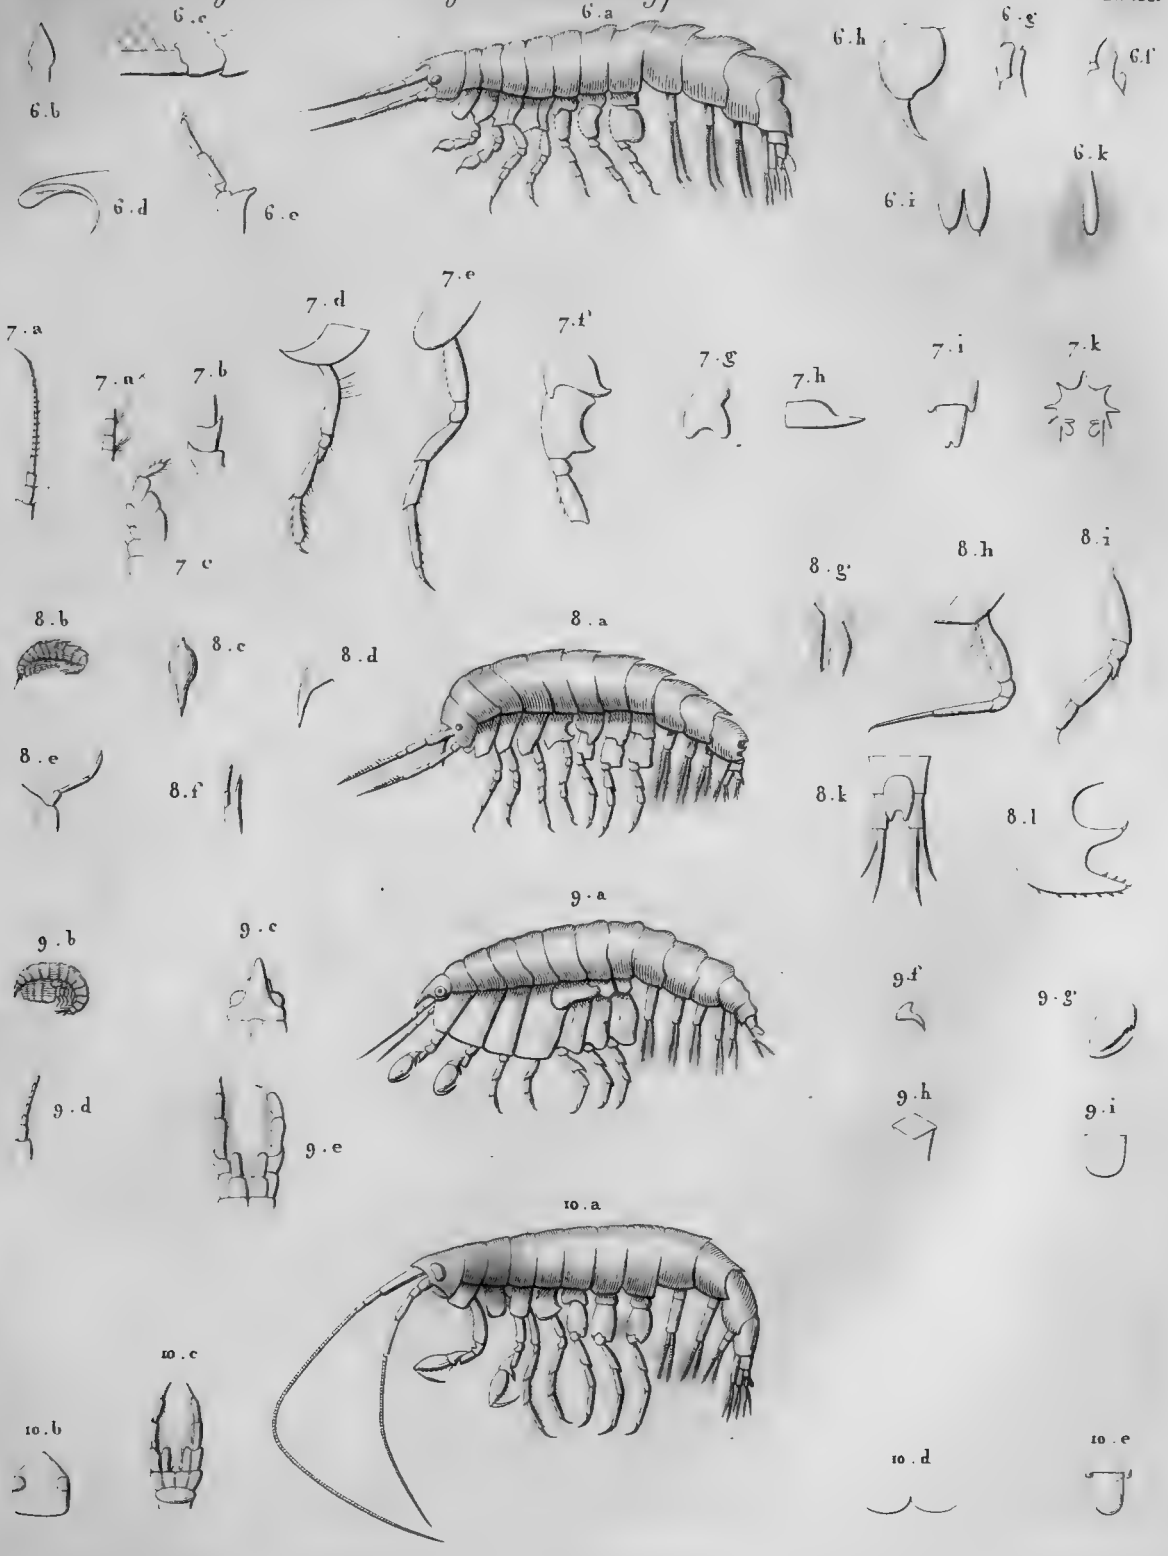 6.c
6.a
6.h
6.g
6.f
6.b
6.d
6.e
6.i
6.k
7.a
7.a*
7.b
7.d
7.e
7.f
7.g
7.h
7.i
7.k
7.c
8.b
8.c
8.d
8.a
8.g
8.h
8.i
8.e
8.f
8.k
8.l
9.b
9.c
9.a
9.f
9.g
9.d
9.e
9.h
9.i
10.a
10.c
10.b
10.d
10.e